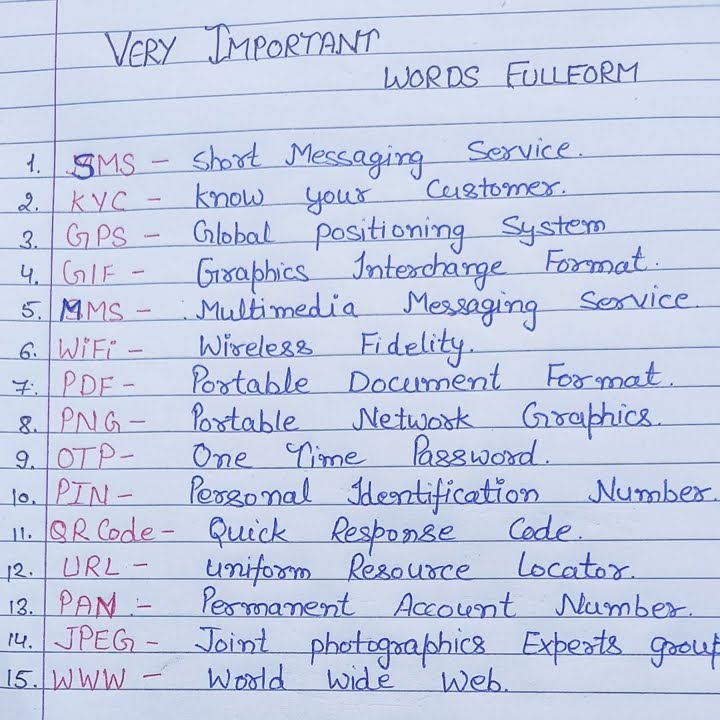 VERY IMPORTANT
WORDS FULLFORM
1. SMS - Short Messaging Service.
2. KYC - Know your Customer.
3. GPS - Global positioning System
4. GIF - Graphics Interchange Format.
5. MMS - Multimedia Messaging Service
6. WiFi - Wireless Fidelity.
7. PDF - Portable Document Format.
8. PNG - Portable Network Graphics.
9. OTP - One Time Password.
10. PIN - Personal Identification Number.
11. QR Code - Quick Response Code.
12. URL - uniform Resource Locator.
13. PAN - Permanent Account Number.
14. JPEG - Joint photographics Experts group
15. WWW - World Wide Web.